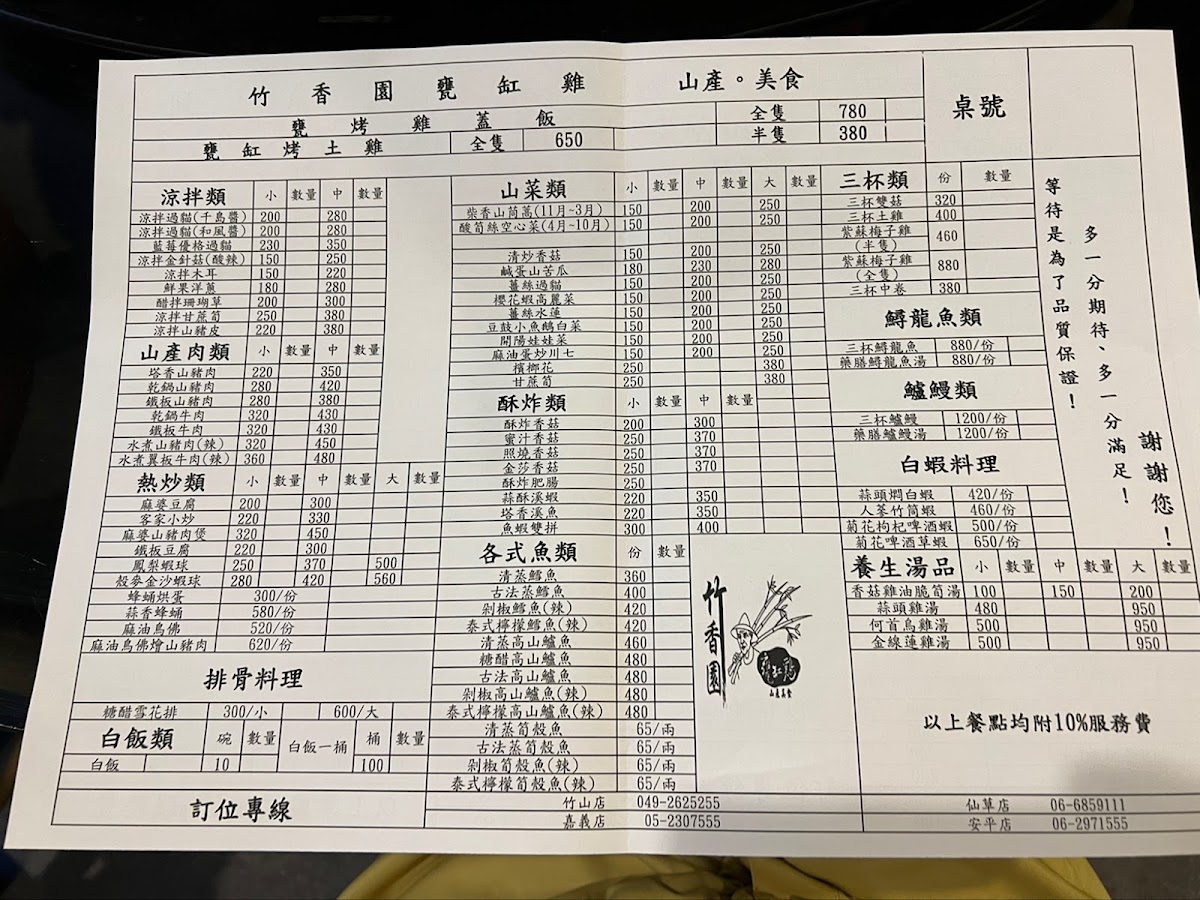 竹香園甕缸雞 山產。美食
甕烤雞蓋飯 全隻 780
甕缸烤土雞 全隻 650 半隻 380
桌號
涼拌類 小 數量 中 數量
涼拌過貓(千島醬) 200 280
涼拌過貓(和風醬) 200 280
藍莓優格過貓 230 350
涼拌金針菇(酸辣) 150 250
涼拌木耳 150 220
鮮果洋蔥 180 280
醋拌珊瑚草 200 300
涼拌甘蔗筍 250 380
涼拌山豬皮 220 380
山產肉類 小 數量 中 數量
塔香山豬肉 220 350
乾鍋山豬肉 280 420
鐵板山豬肉 280 380
乾鍋牛肉 320 430
鐵板牛肉 320 430
水煮山豬肉(辣) 320 450
水煮翼板牛肉(辣) 360 480
熱炒類 小 數量 中 數量 大 數量
麻婆豆腐 200 300
客家小炒 220 330
麻婆山豬肉煲 320 450
鐵板豆腐 220 300
鳳梨蝦球 250 370 500
殼麥金沙蝦球 280 420 560
蜂蛹烘蛋 300/份
蒜香蜂蛹 580/份
麻油鳥佛 520/份
麻油鳥佛燴山豬肉 620/份
排骨料理
糖醋雪花排 300/小 600/大
白飯類 碗 數量 白飯一桶 桶 數量
白飯 10 100
山菜類 小 數量 中 數量 大 數量
柴香山茼蒿(11月~3月) 150 200 250
酸筍絲空心菜(4月~10月) 150 200 250
清炒香菇 150 200 250
鹹蛋山苦瓜 180 230 280
薑絲過貓 150 200 250
櫻花蝦高麗菜 150 200 250
薑絲水蓮 150 200 250
豆鼓小魚鵝白菜 150 200 250
開陽娃娃菜 150 200 250
麻油蛋炒川七 150 200 250
檳榔花 250 380
甘蔗筍 250 380
酥炸類 小 數量 中 數量
酥炸香菇 200 300
蜜汁香菇 250 370
照燒香菇 250 370
金莎香菇 250 370
酥炸肥腸 250
蒜酥溪蝦 220 350
塔香溪魚 220 350
魚蝦雙拼 300 400
各式魚類 份 數量
清蒸鱈魚 360
古法蒸鱈魚 400
剁椒鱈魚(辣) 420
泰式檸檬鱈魚(辣) 420
清蒸高山鱸魚 460
糖醋高山鱸魚 480
古法高山鱸魚 480
剁椒高山鱸魚(辣) 480
泰式檸檬高山鱸魚(辣) 480
清蒸筍殼魚 65/兩
古法蒸筍殼魚 65/兩
剁椒筍殼魚(辣) 65/兩
泰式檸檬筍殼魚(辣) 65/兩
竹香園
甕缸雞
山產美食
三杯類 份 數量
三杯雙菇 320
三杯土雞 400
紫蘇梅子雞(半隻) 460
紫蘇梅子雞(全隻) 880
三杯中卷 380
鱘龍魚類
三杯鱘龍魚 880/份
藥膳鱘龍魚湯 880/份
鱸鰻類
三杯鱸鰻 1200/份
藥膳鱸鰻湯 1200/份
白蝦料理
蒜頭燜白蝦 420/份
人蔘竹筒蝦 460/份
菊花枸杞啤酒蝦 500/份
菊花啤酒草蝦 650/份
養生湯品 小 數量 中 數量 大 數量
香菇雞油脆筍湯 100 150 200
蒜頭雞湯 480 950
何首烏雞湯 500 950
金線蓮雞湯 500 950
以上餐點均附10%服務費
多一分期待、多一分滿足！
等待是為了品質保證！
謝謝您！
訂位專線
竹山店 049-2625255
嘉義店 05-2307555
仙草店 06-6859111
安平店 06-2971555